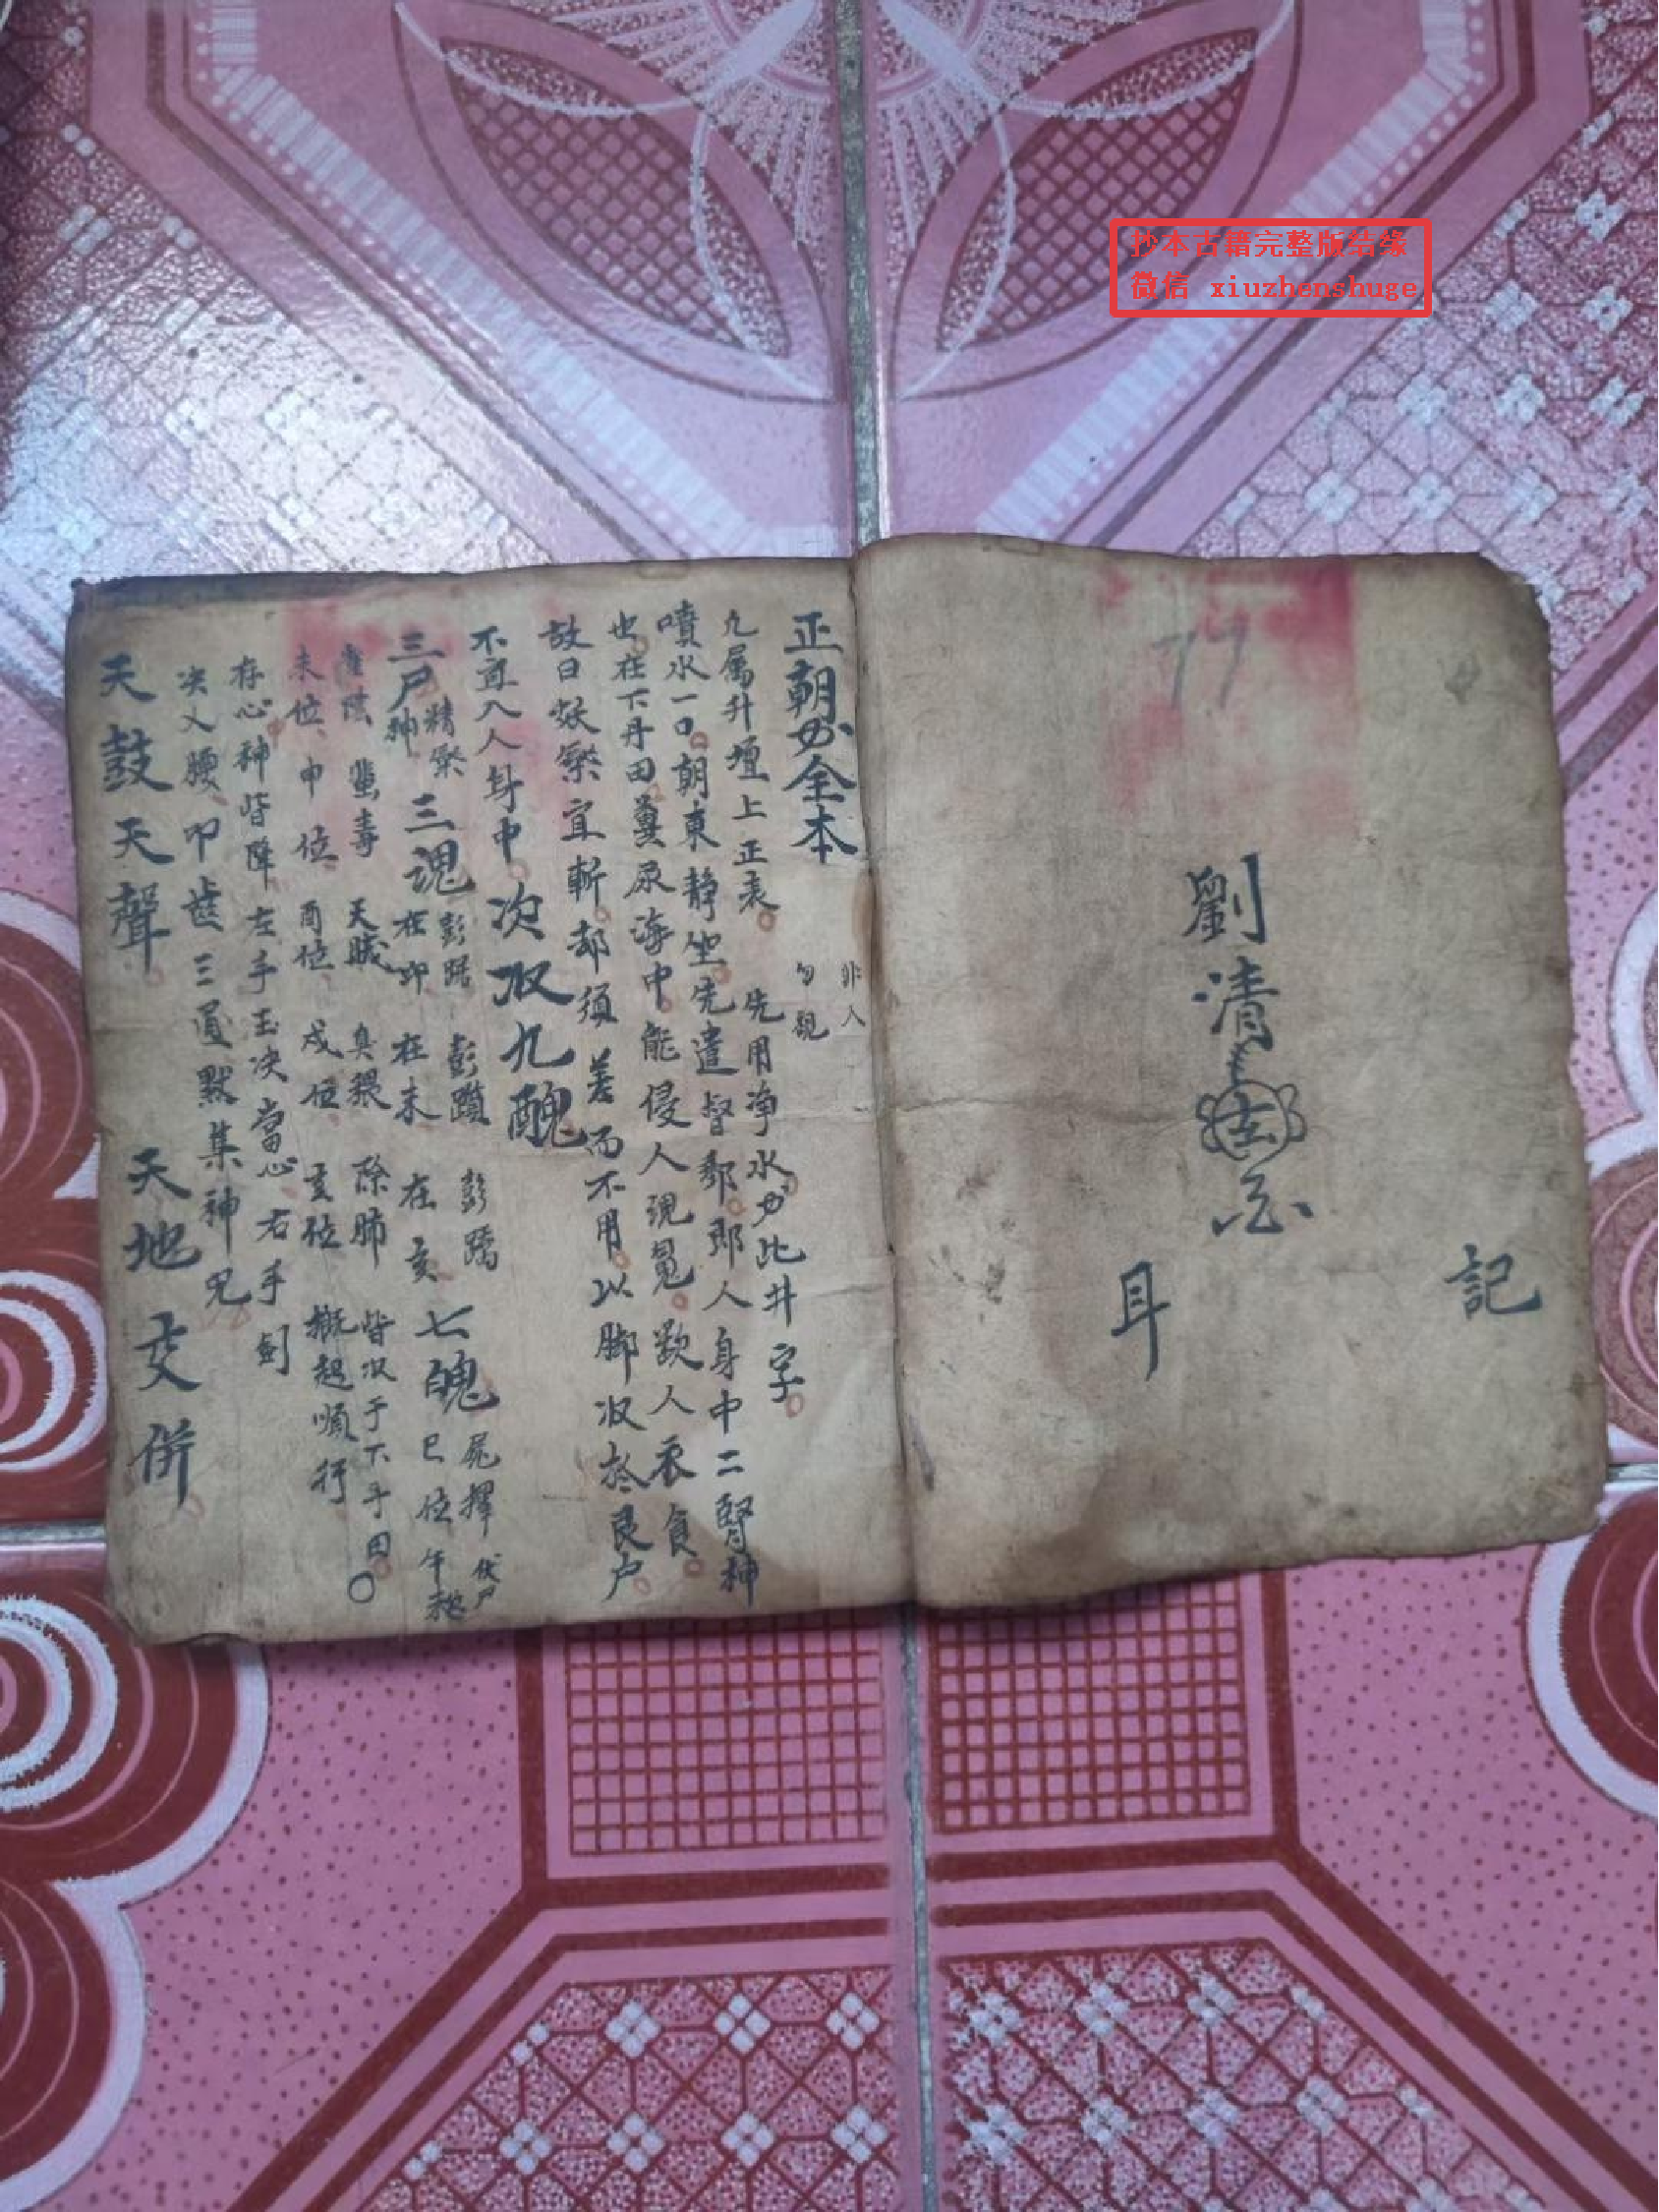 抄本古籍完整版结缘
微信 xiuzhenshuge
77
記
劉清
耳
正朝全本
非人
勿觀
凡属升壇上正表 先用净水 此井字
噴水一口朝東静坐先遣督郵郎人身中二腎神
也在下丹田糞尿海中能侵人現冤歎人衣食
故曰 宜斬却須差而不用以脚收於艮户
不宜入人身中 次收九醜
三尸神 三魂 彭踞 彭躓 彭蹻 七魄 伏尸
在卯 在未 在亥 巳位 午
雀陰 蜚毒 天賊 臭猥 除肺 皆收于下丹田
未位 申位 酉位 戍位 亥位 概起順行
存心神皆降左手玉决當心右手剑
决入腰叩齿三通默集神咒
天鼓天聲 天地交併